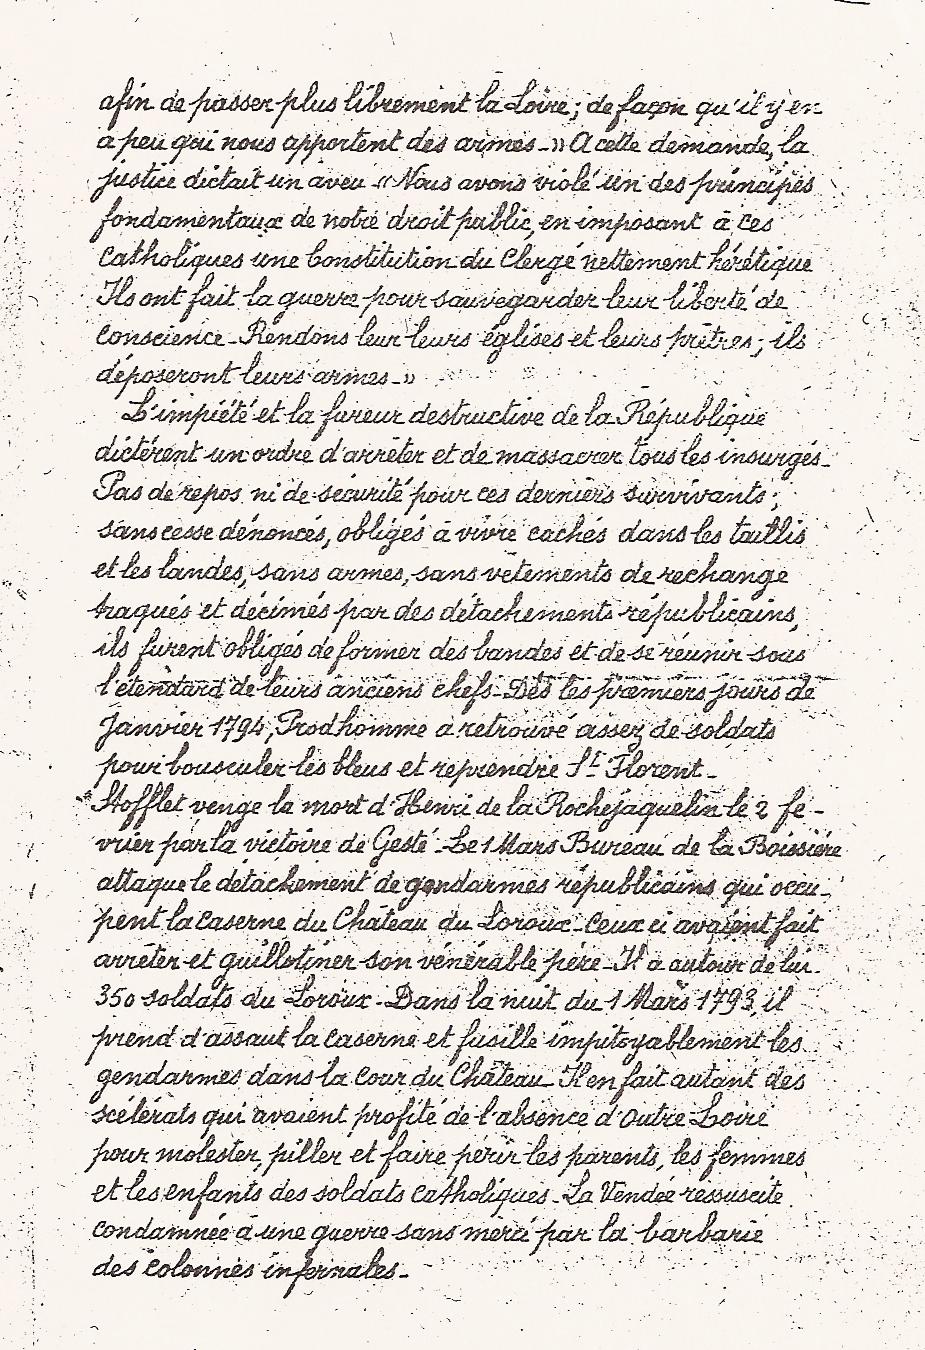 afin de passer plus librement la Loire ; de façon qu'il y en
a peu qui nous apportent des armes - » A cette demande, la
justice dictait un aveu - « Nous avons violé un des principes
fondamentaux de notre droit public, en imposant à ces
Catholiques une Constitution du Clergé nettement hérétique
Ils ont fait la guerre pour sauvegarder leur liberté de
conscience - Rendons leur leurs églises et leurs prêtres ; ils
déposeront leurs armes - »
L'impiété et la fureur destructive de la République
dictèrent un ordre d'arrêter et de massacrer tous les insurgés -
Pas de repos ni de sécurité pour ces derniers survivants ;
sans cesse dénoncés, obligés à vivre cachés dans les taillis
et les landes, sans armes, sans vêtements de rechange
traqués et décimés par des détachements républicains,
ils furent obligés de former des bandes et de se réunir sous
l'étendard de leurs anciens chefs - Dès les premiers jours de
Janvier 1794, Prodhomme a retrouvé assez de soldats
pour bousculer les bleus et reprendre St Florent -
Stofflet venge la mort d'Henri de la Rochejaquelin le 2 fé-
vrier par la victoire de Gesté - Le 1 Mars Bureau de la Boissière
attaque le détachement de gendarmes républicains qui occu-
pent la caserne du Château du Loroux - Ceux ci avaient fait
arrêter et guillotiner son vénérable père - Il a autour de lui
350 soldats du Loroux - Dans la nuit du 1 Mars 1793, il
prend d'assaut la caserne et fusille impitoyablement les
gendarmes dans la cour du Château - Il en fait autant des
scélérats qui avaient profité de l'absence d'Outre Loire
pour molester, piller et faire périr les parents, les femmes
et les enfants des soldats catholiques - La Vendée ressuscite
condamnée à une guerre sans merci par la barbarie
des colonnes infernales -